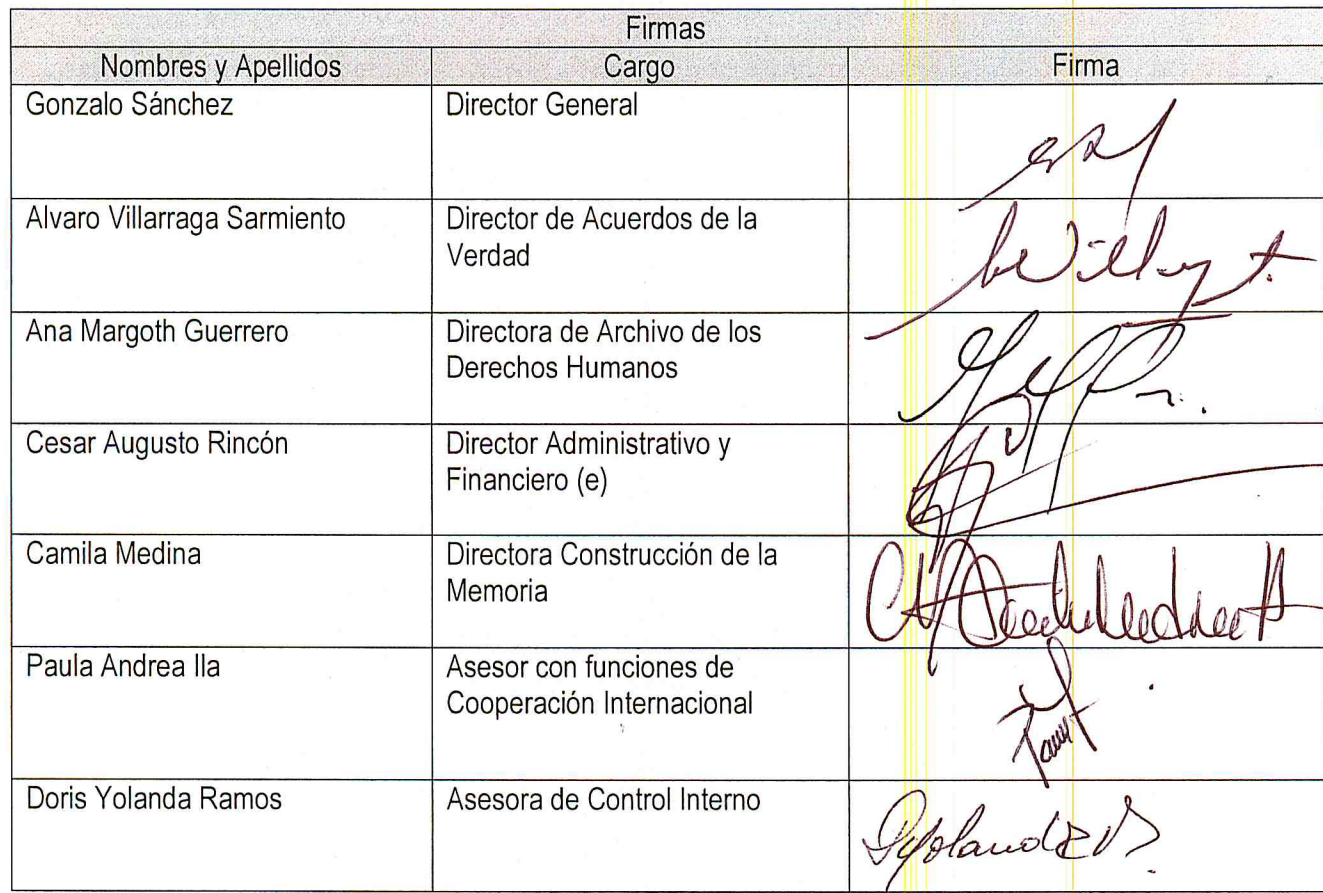 Firmas
Nombres y Apellidos Cargo Firma
Gonzalo Sánchez Director General
Alvaro Villarraga Sarmiento Director de Acuerdos de la
Verdad
Ana Margoth Guerrero Directora de Archivo de los
Derechos Humanos
Cesar Augusto Rincón Director Administrativo y
Financiero (e)
Camila Medina Directora Construcción de la
Memoria
Paula Andrea Ila Asesor con funciones de
Cooperación Internacional
Doris Yolanda Ramos Asesora de Control Interno